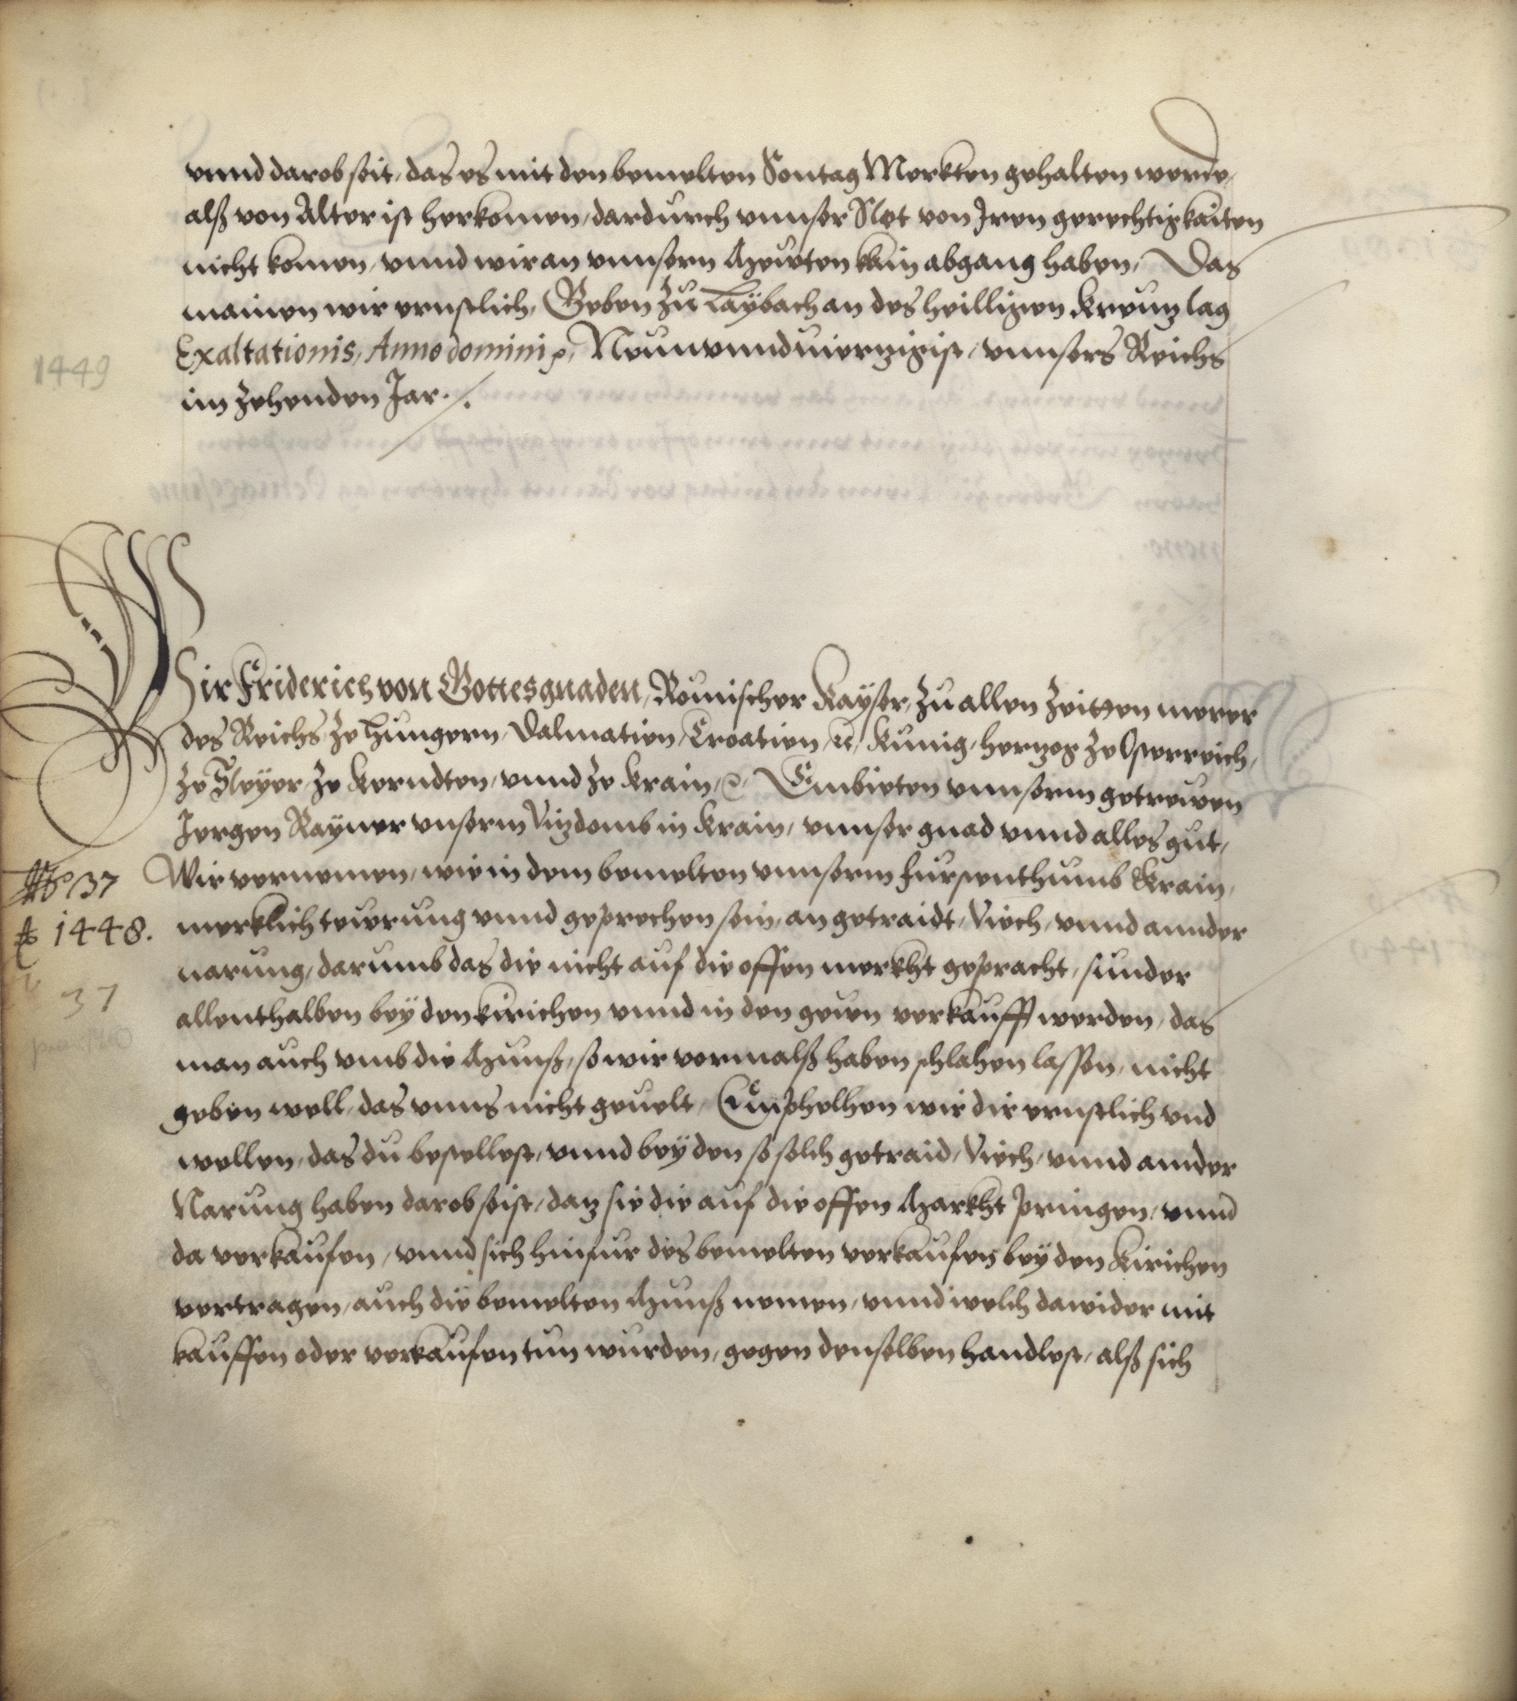 vnnd darob seit, das es mit den bemelten Sontag Merkten gehalten werde,
alß von Alter ist herkomen, dardurch vnnser Stet von Iren gerechtigkaiten
nicht komen, vnnd wir an vnnsern Mewten kain abgang haben, Das
mainen wir ernstlich, Geben zu Laybach an des heilligen Kreuz tag
Exaltationis, Anno domini Neunvnndvierzigist, vnnsers Reichs
1449
im zehenden Jar.
Wir Friderich von Gottes gnaden, Romischer Kayser, zu allen Zeitten merer
des Reichs, ze Hungern, Dalmatien, Croatien, Kunig, herzog ze Osterreich,
ze Steyer ze Kerndten, vnnd ze Krain, Embieten vnnserm getrewen
Jergen Rayner vnserm Vizdomb in Krain, vnnser gnad vnnd alles gut,
Wir vernemen, wie in dem bemelten vnnserm furstenthumb Krain,
No 37
merklich tewrung vnnd geprechen sein, an getraidt, Viech, vnnd annder
1448.
narung, darumb das die nicht auf die offen merkht gepracht, sunder
37
allenthalben bey den kirichen vnnd in den gewen verkaufft werden, das
man auch vmb die Munß, so wir vormalß haben schlahen lassen, nicht
geben well, das vnns nicht geuelt, Emphelhen wir dir ernstlich vnd
wellen, das du bestellest, vnnd bey den so solch getraid, Viech, vnnd annder
Narung haben darob seist, daz sie die auf die offen Markht pringen, vnnd
da verkaufen, vnnd sich hinfur des bemelten verkaufens bey den Kirichen
vertragen, auch die bemelten Munß nemen, vnnd welch dawider mit
kauffen oder verkaufen tun wurden, gegen denselben handlest, alß sich